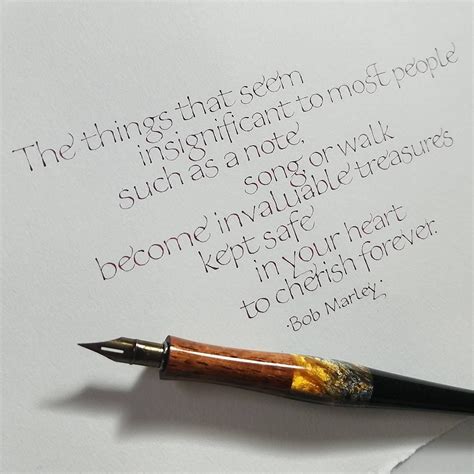 The things that seem
insignificant to most people
such as a note,
song or walk
become invaluable treasures
kept safe
in your heart
to cherish forever.
·Bob Marley·